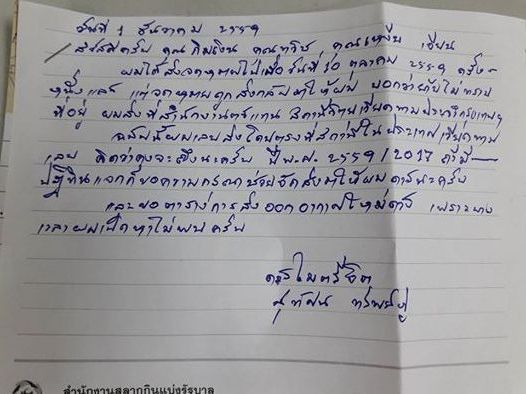 วันที่ 1 ธันวาคม ๒๕๕๙
สวัสดีครับ คุณกิมเงิน คุณทวิช คุณเหงียน เชียน
ผมได้ส่งจดหมายไปเมื่อวันที่ 10 ตุลาคม ๒๕๕๙ ครั้ง-
หนึ่งแล้ว แต่จดหมายถูกส่งกลับมาให้ผม บอกว่ายังไม่ทราบ
ที่อยู่ ผมส่งที่สำนักงานตัวแทน สถานีวิทยุเวียดนามประจำกรุงเทพฯ
ฉบับนี้ผมเลยส่งโดยตรงที่สถานีในประเทศเวียดนาม
เลย คิดว่าคงจะถึงนะครับ ปี พ.ศ. ๒๕๕๙/2017 ถ้ามี
ปฏิทินแจกก็ขอความกรุณาช่วยจัดส่งมาให้ผมด้วยนะครับ
และขอตารางการส่งออกอากาศใหม่ด้วย เพราะบาง
เวลาผมเปิดหาไม่พบครับ
ด้วยไมตรีจิต
สุทัศน์
สำนักงานสลากกินแบ่งรัฐบาล